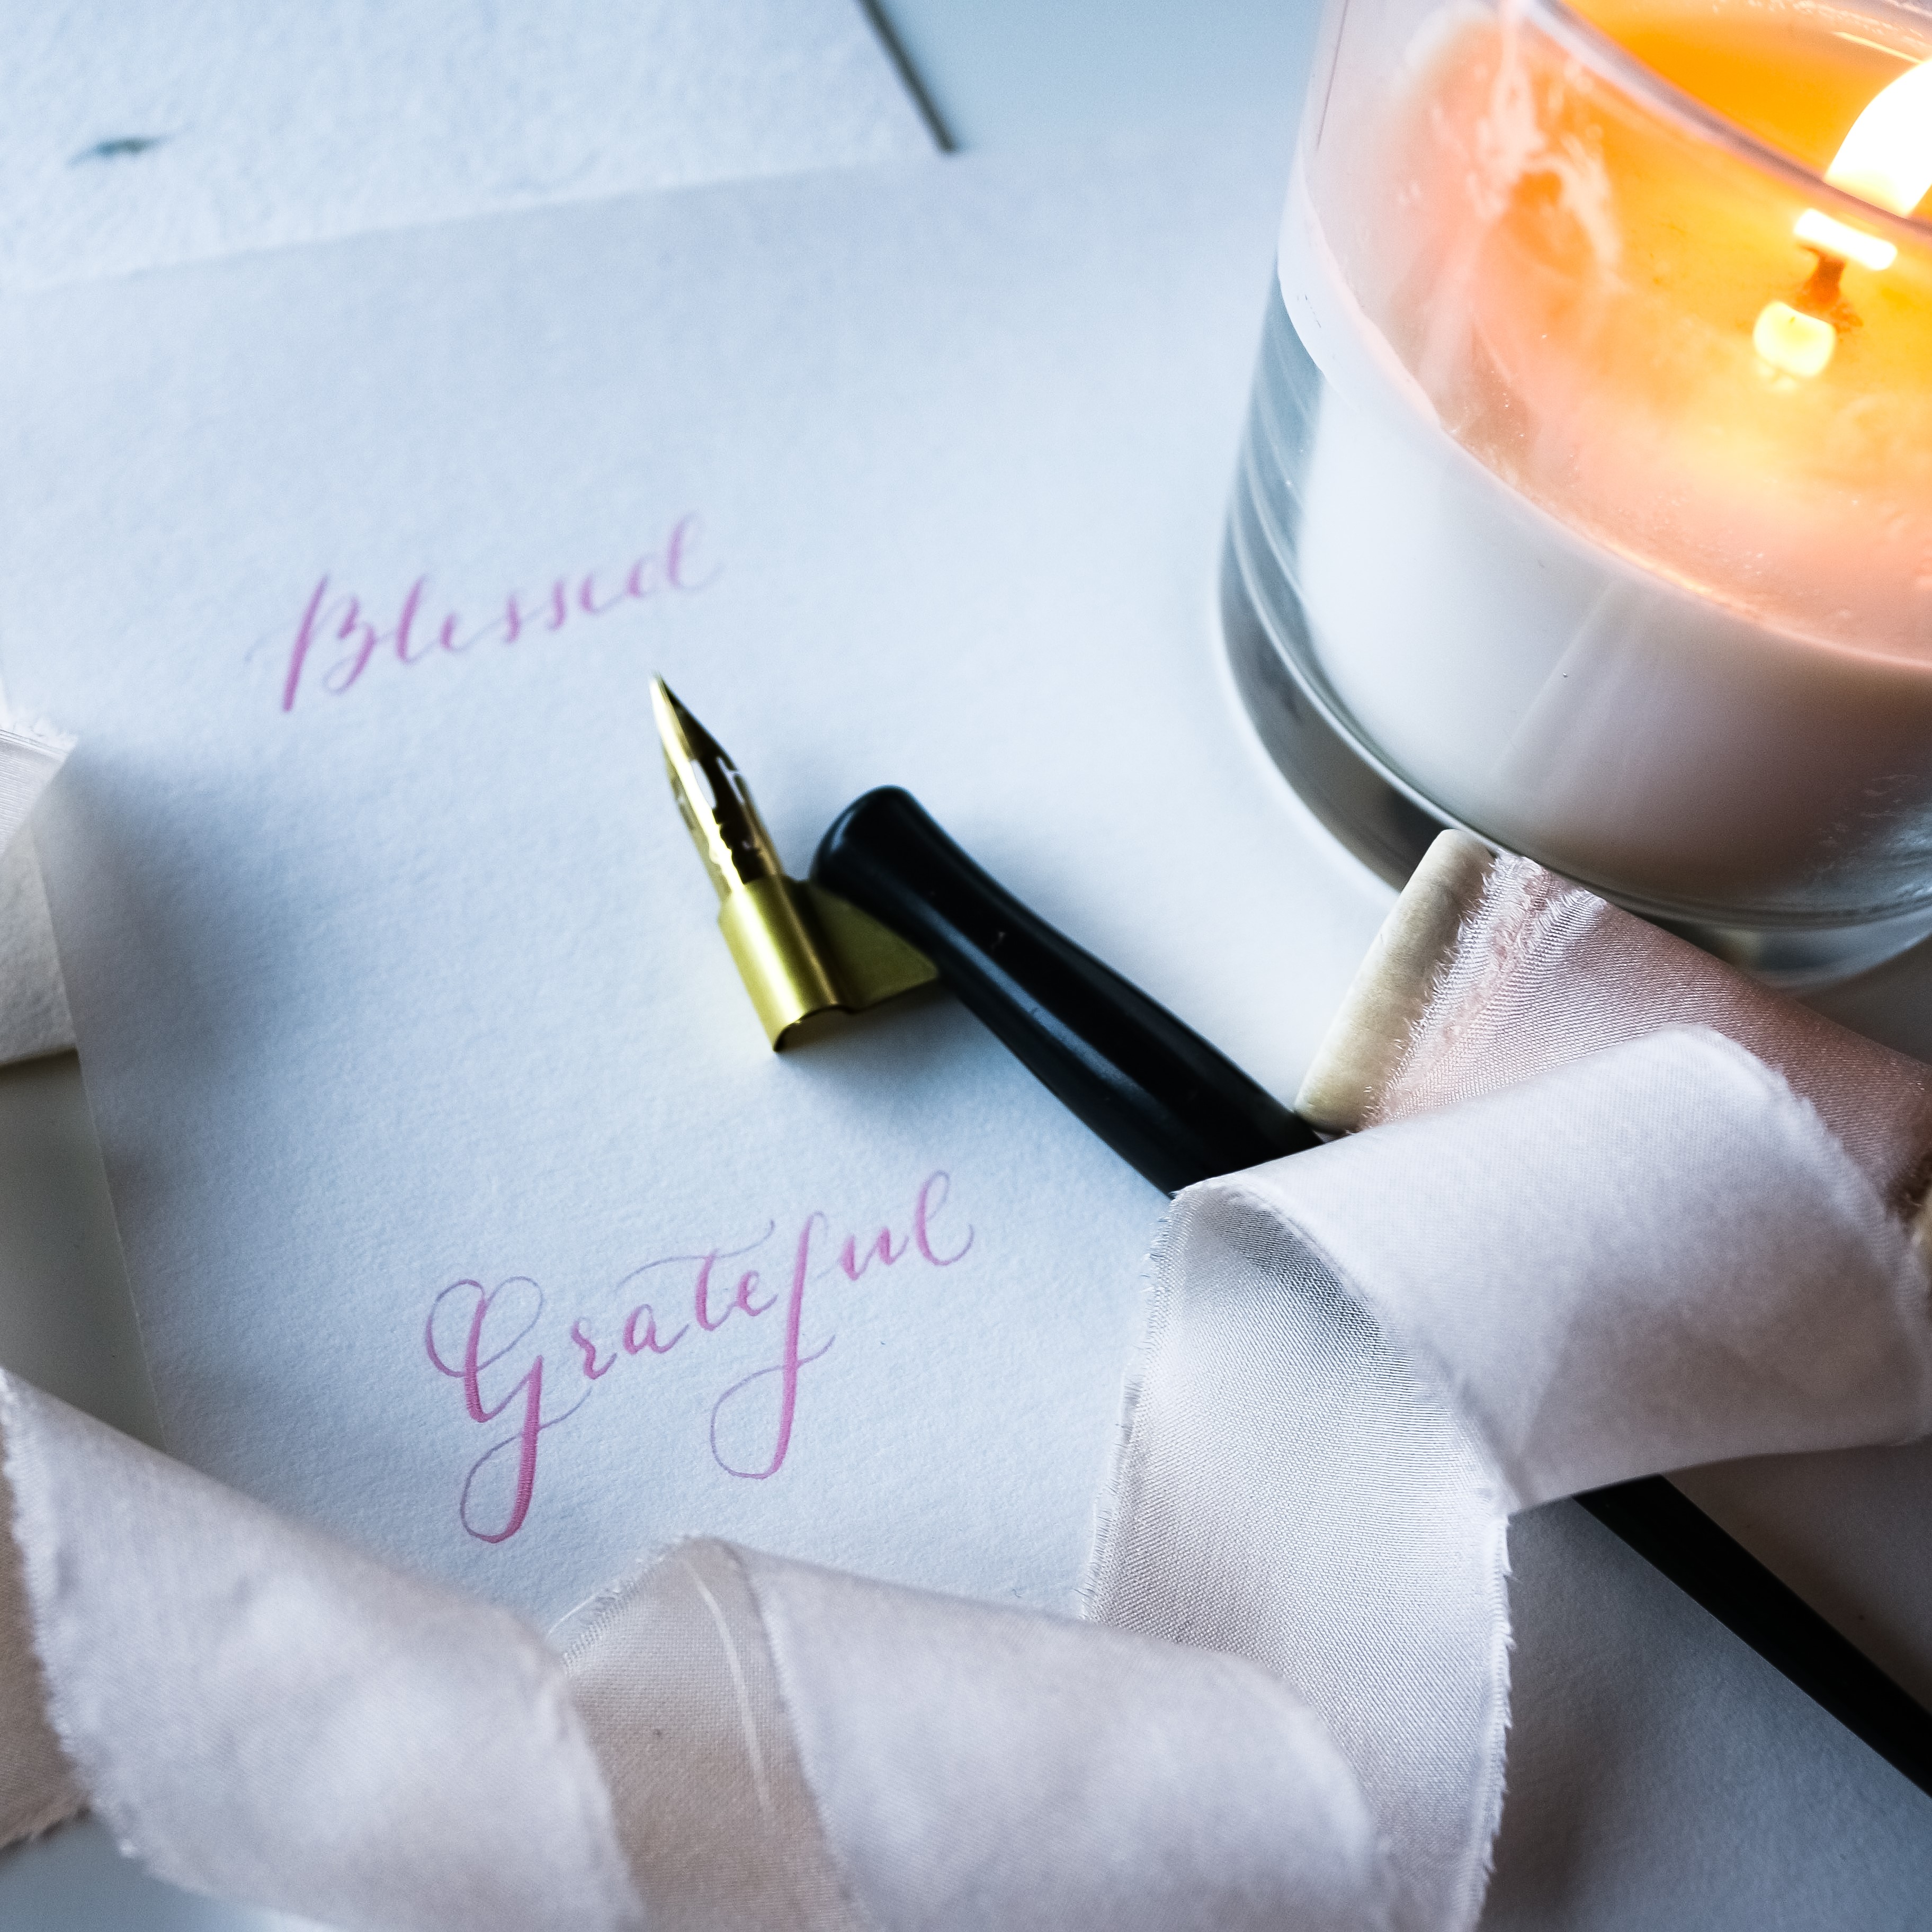 Blessed
Grateful